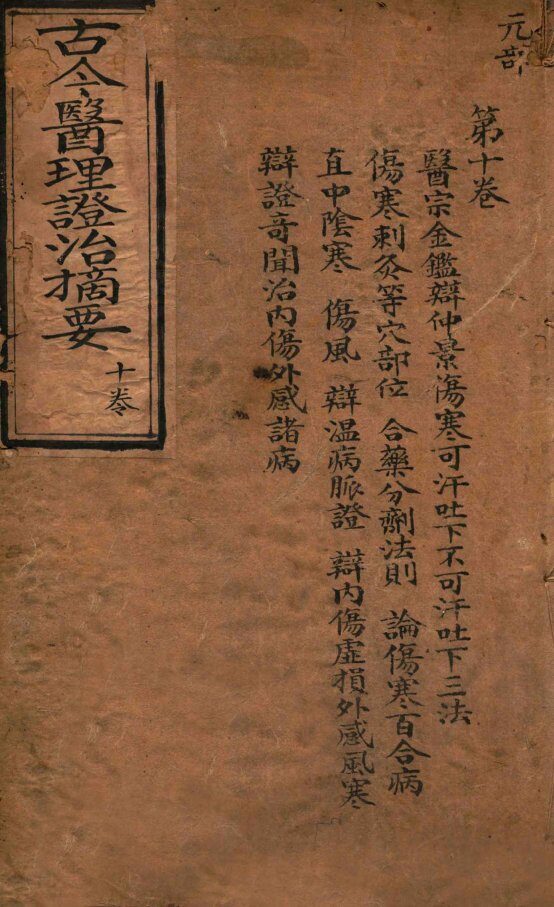 元部
第十卷
醫宗金鑑辯仲景傷寒可汗吐下不可汗吐下三法
傷寒刺灸等穴部位　合藥分劑法則　論傷寒百合病
直中陰寒　傷風　辯温病脈證　辯內傷虛損外感風寒
辯證奇聞治內傷外感諸病
古今醫理證治摘要
十卷